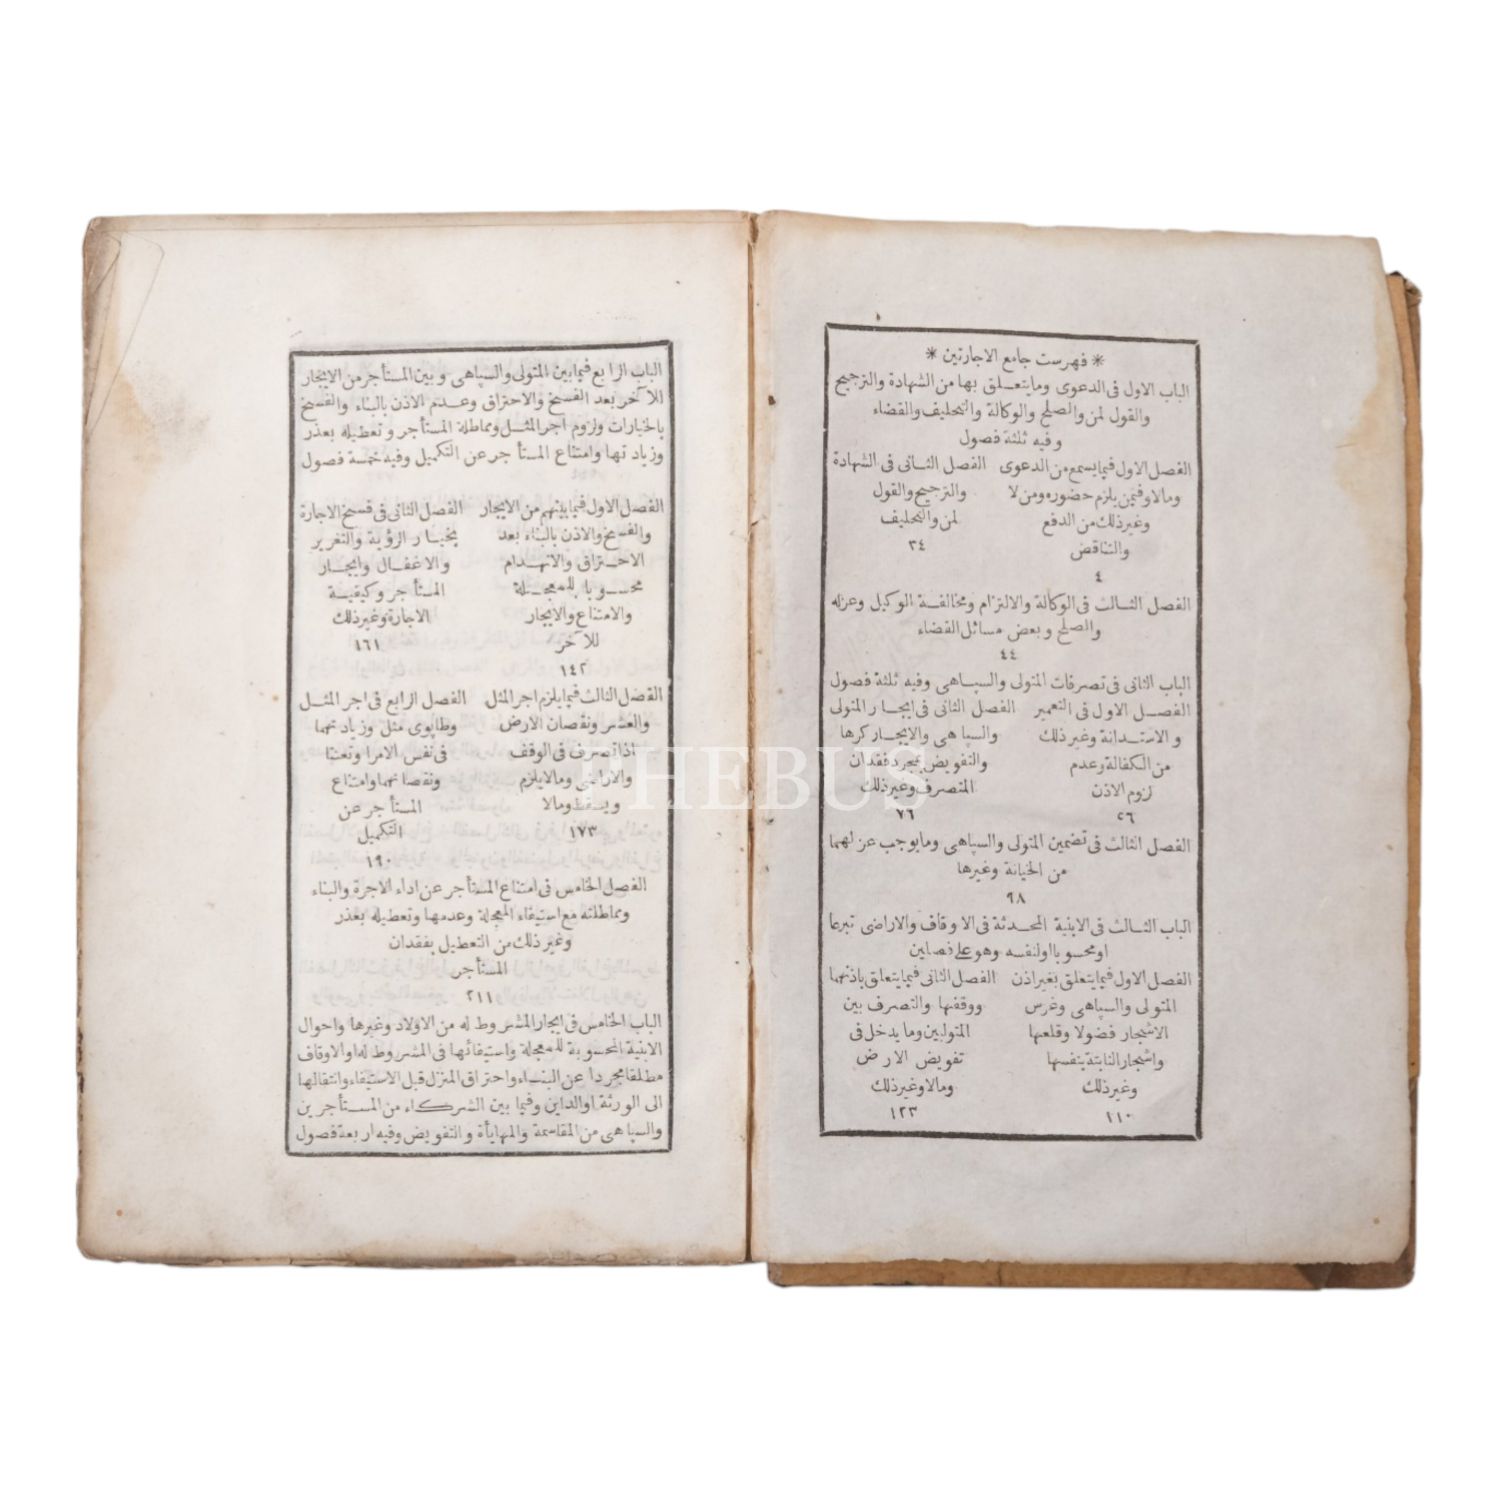 * فهرست جامع الاجارتين *
الباب الاول فى الدعوى وما يتعلق بها من الشهادة والترجيح
والقول لمن والصلح والوكالة والتحليف والقضاء
وفيه ثلثة فصول
الفصل الاول فيما يسمع من الدعوى
ومالا وفيمن يلزم حضوره ومن لا
وغير ذلك من الدفع
والتناقض
٤
الفصل الثانى فى الشهادة
والترجيح والقول
لمن والتحليف
٣٤
الفصل الثالث فى الوكالة والالتزام ومخالفة الوكيل وعزله
والصلح وبعض مسائل القضاء
٤٤
الباب الثانى فى تصرفات المتولى والسپاهى وفيه ثلثة فصول
الفصل الاول فى التعمير
والاستدانة وغير ذلك
من الكفالة وعدم
لزوم الاذن
٢٦
الفصل الثانى فى ايجار المتولى
والسپاهى والايجار كرها
والتفويض بمجرد فقدان
المتصرف وغير ذلك
٧٦
الفصل الثالث فى تضمين المتولى والسپاهى وما يوجب عزلهما
من الخيانة وغيرها
٩٨
الباب الثالث فى الابنية المحدثة فى الاوقاف والاراضى تبرعا
او محسوبا او لنفسه وهو على فصلين
الفصل الاول فيما يتعلق بغير اذن
المتولى والسپاهى وغرس
الاشجار فضولا وقلعها
واشجار النابتة بنفسها
وغير ذلك
١١٠
الفصل الثانى فيما يتعلق باذنهما
ووقفها والتصرف بين
المتوليين وما يدخل فى
تفويض الارض
ومالا وغير ذلك
١٢٣
الباب الرابع فيما بين المتولى والسپاهى وبين المستأجر من الايجار
للآخر بعد الفسخ والاحتراق وعدم الاذن بالبناء والفسخ
بالخيارات ولزوم اجر المثل ومماطلة المستأجر وتعطيله بعذر
وزيادتها وامتناع المستأجر عن التكميل وفيه خمسة فصول
الفصل الاول فيما بينهم من الايجار
والفسخ والاذن بالبناء بعد
الاحتراق والانهدام
محسوبا للمعجلة
والامتناع والايجار
للآخر
١٤٢
الفصل الثانى فى فسخ الاجارة
بخيار الرؤية والتغرير
والاغفال وايجار
المستأجر وكيفية
الاجارة وغير ذلك
١٦١
الفصل الثالث فيما يلزم اجر المثل
والعشر ونقصان الارض
اذا تصرف فى الوقف
والاراضى ومالا يلزم
ويسقط ومالا
١٧٣
الفصل الرابع فى اجر المثل
وطاپوى مثل وزيادتهما
فى نفس الامر او تعنتا
ونقصانهما وامتناع
المستأجر عن
التكميل
١٩٠
الفصل الخامس فى امتناع المستأجر عن اداء الاجرة والبناء
ومماطلته مع استيفاء المعجلة وعدمها وتعطيله بعذر
وغير ذلك من التعطيل بفقدان
المستأجر
٢١١
الباب الخامس فى ايجار المشروط له من الاولاد وغيرها واحوال
الابنية المحسوبة للمعجلة واستيفائها فى المشروط له او الاوقاف
مطلقا مجردا عن البناء واحتراق المنزل قبل الاستيفاء وانتقالها
الى الورثة او الداين وفيما بين الشركاء من المستأجرين
والسپاهى من المقاسمة والمهايأة والتفويض وفيه اربعة فصول
PHEBUS